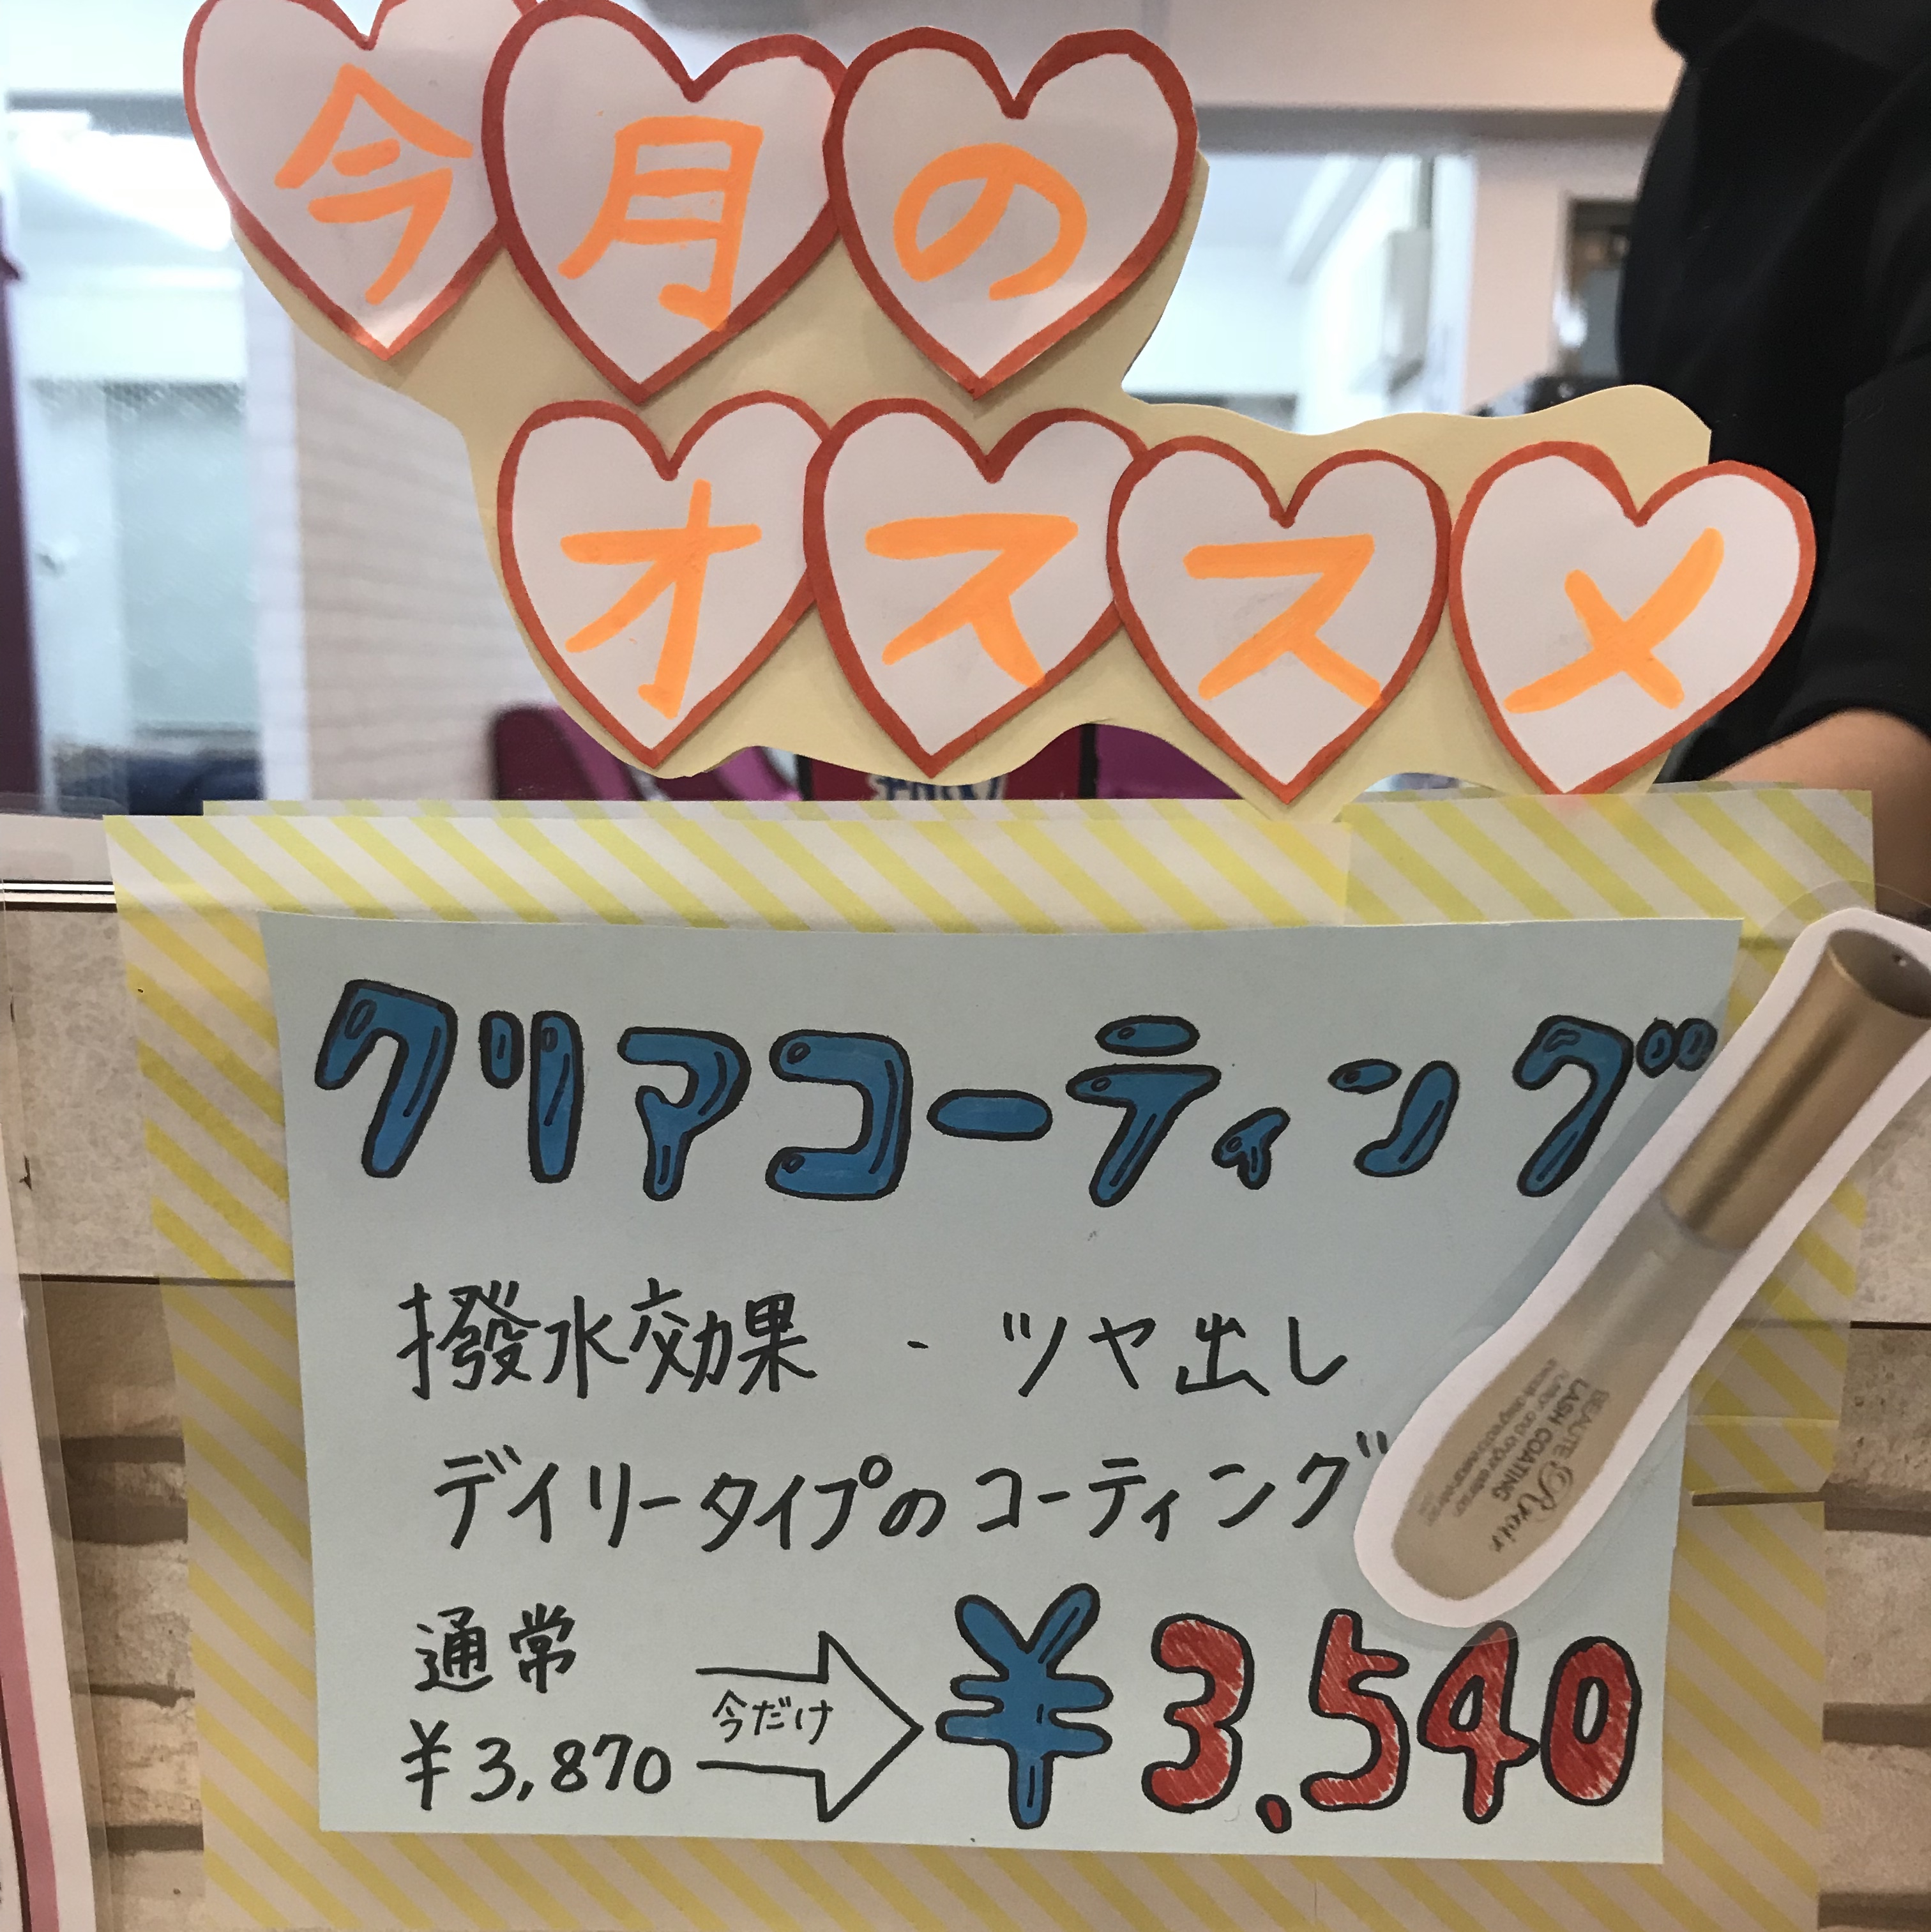 今月の
オススメ
クリアコーティング
撥水効果 ・ ツヤ出し
デイリータイプのコーティング
BEAUTE
LASH COATING
通常
¥3,870
今だけ
¥3,540